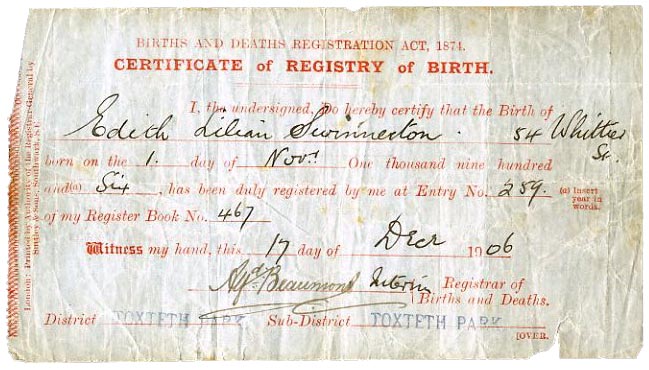 BIRTHS AND DEATHS REGISTRATION ACT, 1874.
CERTIFICATE of REGISTRY of BIRTH.
I, the undersigned, Do hereby certify that the Birth of
Edith Lilian Swinnerton. 54 Whittier St.
born on the 1. day of Novr One thousand nine hundred
and(a) Six, has been duly registered by me at Entry No. 259.
(a) Insert year in words.
of my Register Book No. 467
Witness my hand, this 17 day of Decr 1906
Alfd. Beaumont Interim Registrar of
Births and Deaths.
District TOXTETH PARK Sub-District TOXTETH PARK
[OVER.
London: Printed by Authority of the Registrar General by